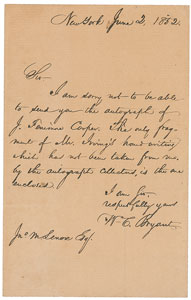 New York June 2, 1852.
Sir
I am sorry not to be able
to send you the autograph of
J. Fenimore Cooper. The only frag-
ment of Mr Irving's hand-writing
which has not been taken from me
by the autograph collectors, is the one
enclosed.
I am Sir
respectfully yours
W. C. Bryant.
Jno McLenon Esq.